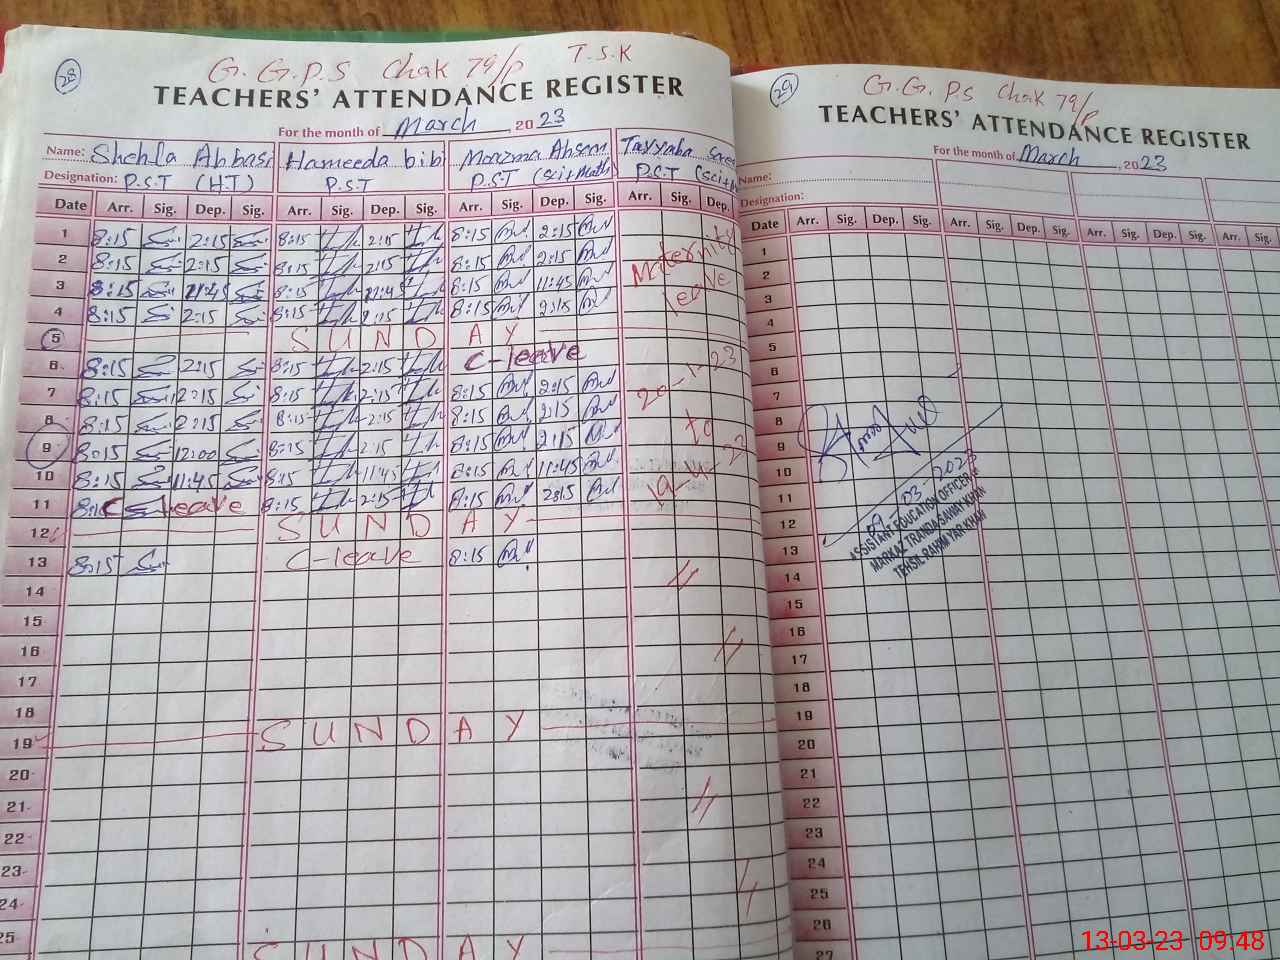 28
G.G.P.S Chak 79/P T.S.K
TEACHERS' ATTENDANCE REGISTER
For the month of March, 2023
Name: Shehla Abbasi Hameeda bibi Ahsan Tayyaba
Designation: P.S.T (H.T) P.S.T P.S.T (Sci+Math) P.S.T (Sci+
Date Arr. Sig. Dep. Sig. Arr. Sig. Dep. Sig. Arr. Sig. Dep. Sig. Arr. Sig. Dep.
1 8:15 2:15 8:15 2:15 8:15 2:15 Maternity
2 8:15 2:15 8:15 2:15 8:15 2:15
3 8:15 11:45 8:15 11:45 8:15 11:45 leave
4 8:15 2:15 8:15 2:15 8:15 2:15
5 SUNDAY
6 8:15 2:15 8:15 2:15 C-leave 20-1-23
7 8:15 2:15 8:15 2:15 8:15 2:15
8 8:15 2:15 8:15 2:15 8:15 2:15 to
9 8:15 12:00 8:15 2:15 8:15 2:15
10 8:15 11:45 8:15 11:45 8:15 11:45
11 C-leave 8:15 2:15 8:15 2:15
12 SUNDAY
13 8:15 C-leave 8:15
14
15
16
17
18
19 SUNDAY
20
21
22
23
24
25
SUNDAY
29
G.G.P.S Chak 79/P
TEACHERS' ATTENDANCE REGISTER
For the month of March, 2023
Name:
Designation:
Date Arr. Sig. Dep. Sig. Arr. Sig. Dep. Sig. Arr. Sig. Dep. Sig. Arr. Sig.
1
2
3
4
5
6
7
8
9
10
11
12
13
14
15
16
17
18
19
20
21
22
23
24
25
26
27
09-03-2023
ASSISTANT EDUCATION OFFICER
MARKAZ TRANDA SAWAY KHAN
TEHSIL RAHIM YAR KHAN
13-03-23 09:48